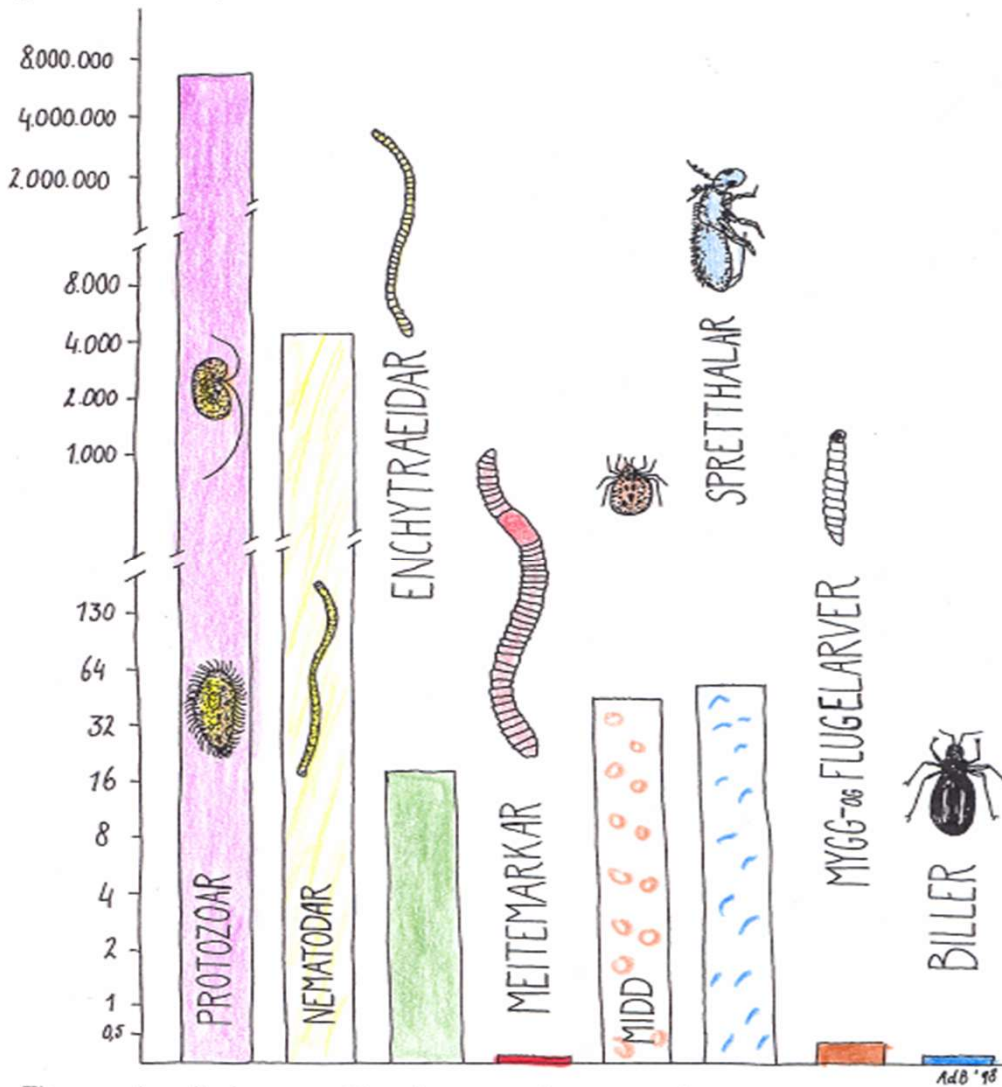 8.000.000
4.000.000
2.000.000
8.000
4.000
2.000
1.000
130
64
32
16
8
4
2
1
0,5
PROTOZOAR
NEMATODAR
ENCHYTRAEIDAR
MEITEMARKAR
MIDD
SPRETTHALAR
MYGG- OG FLUGELARVER
BILLER
AdB '98